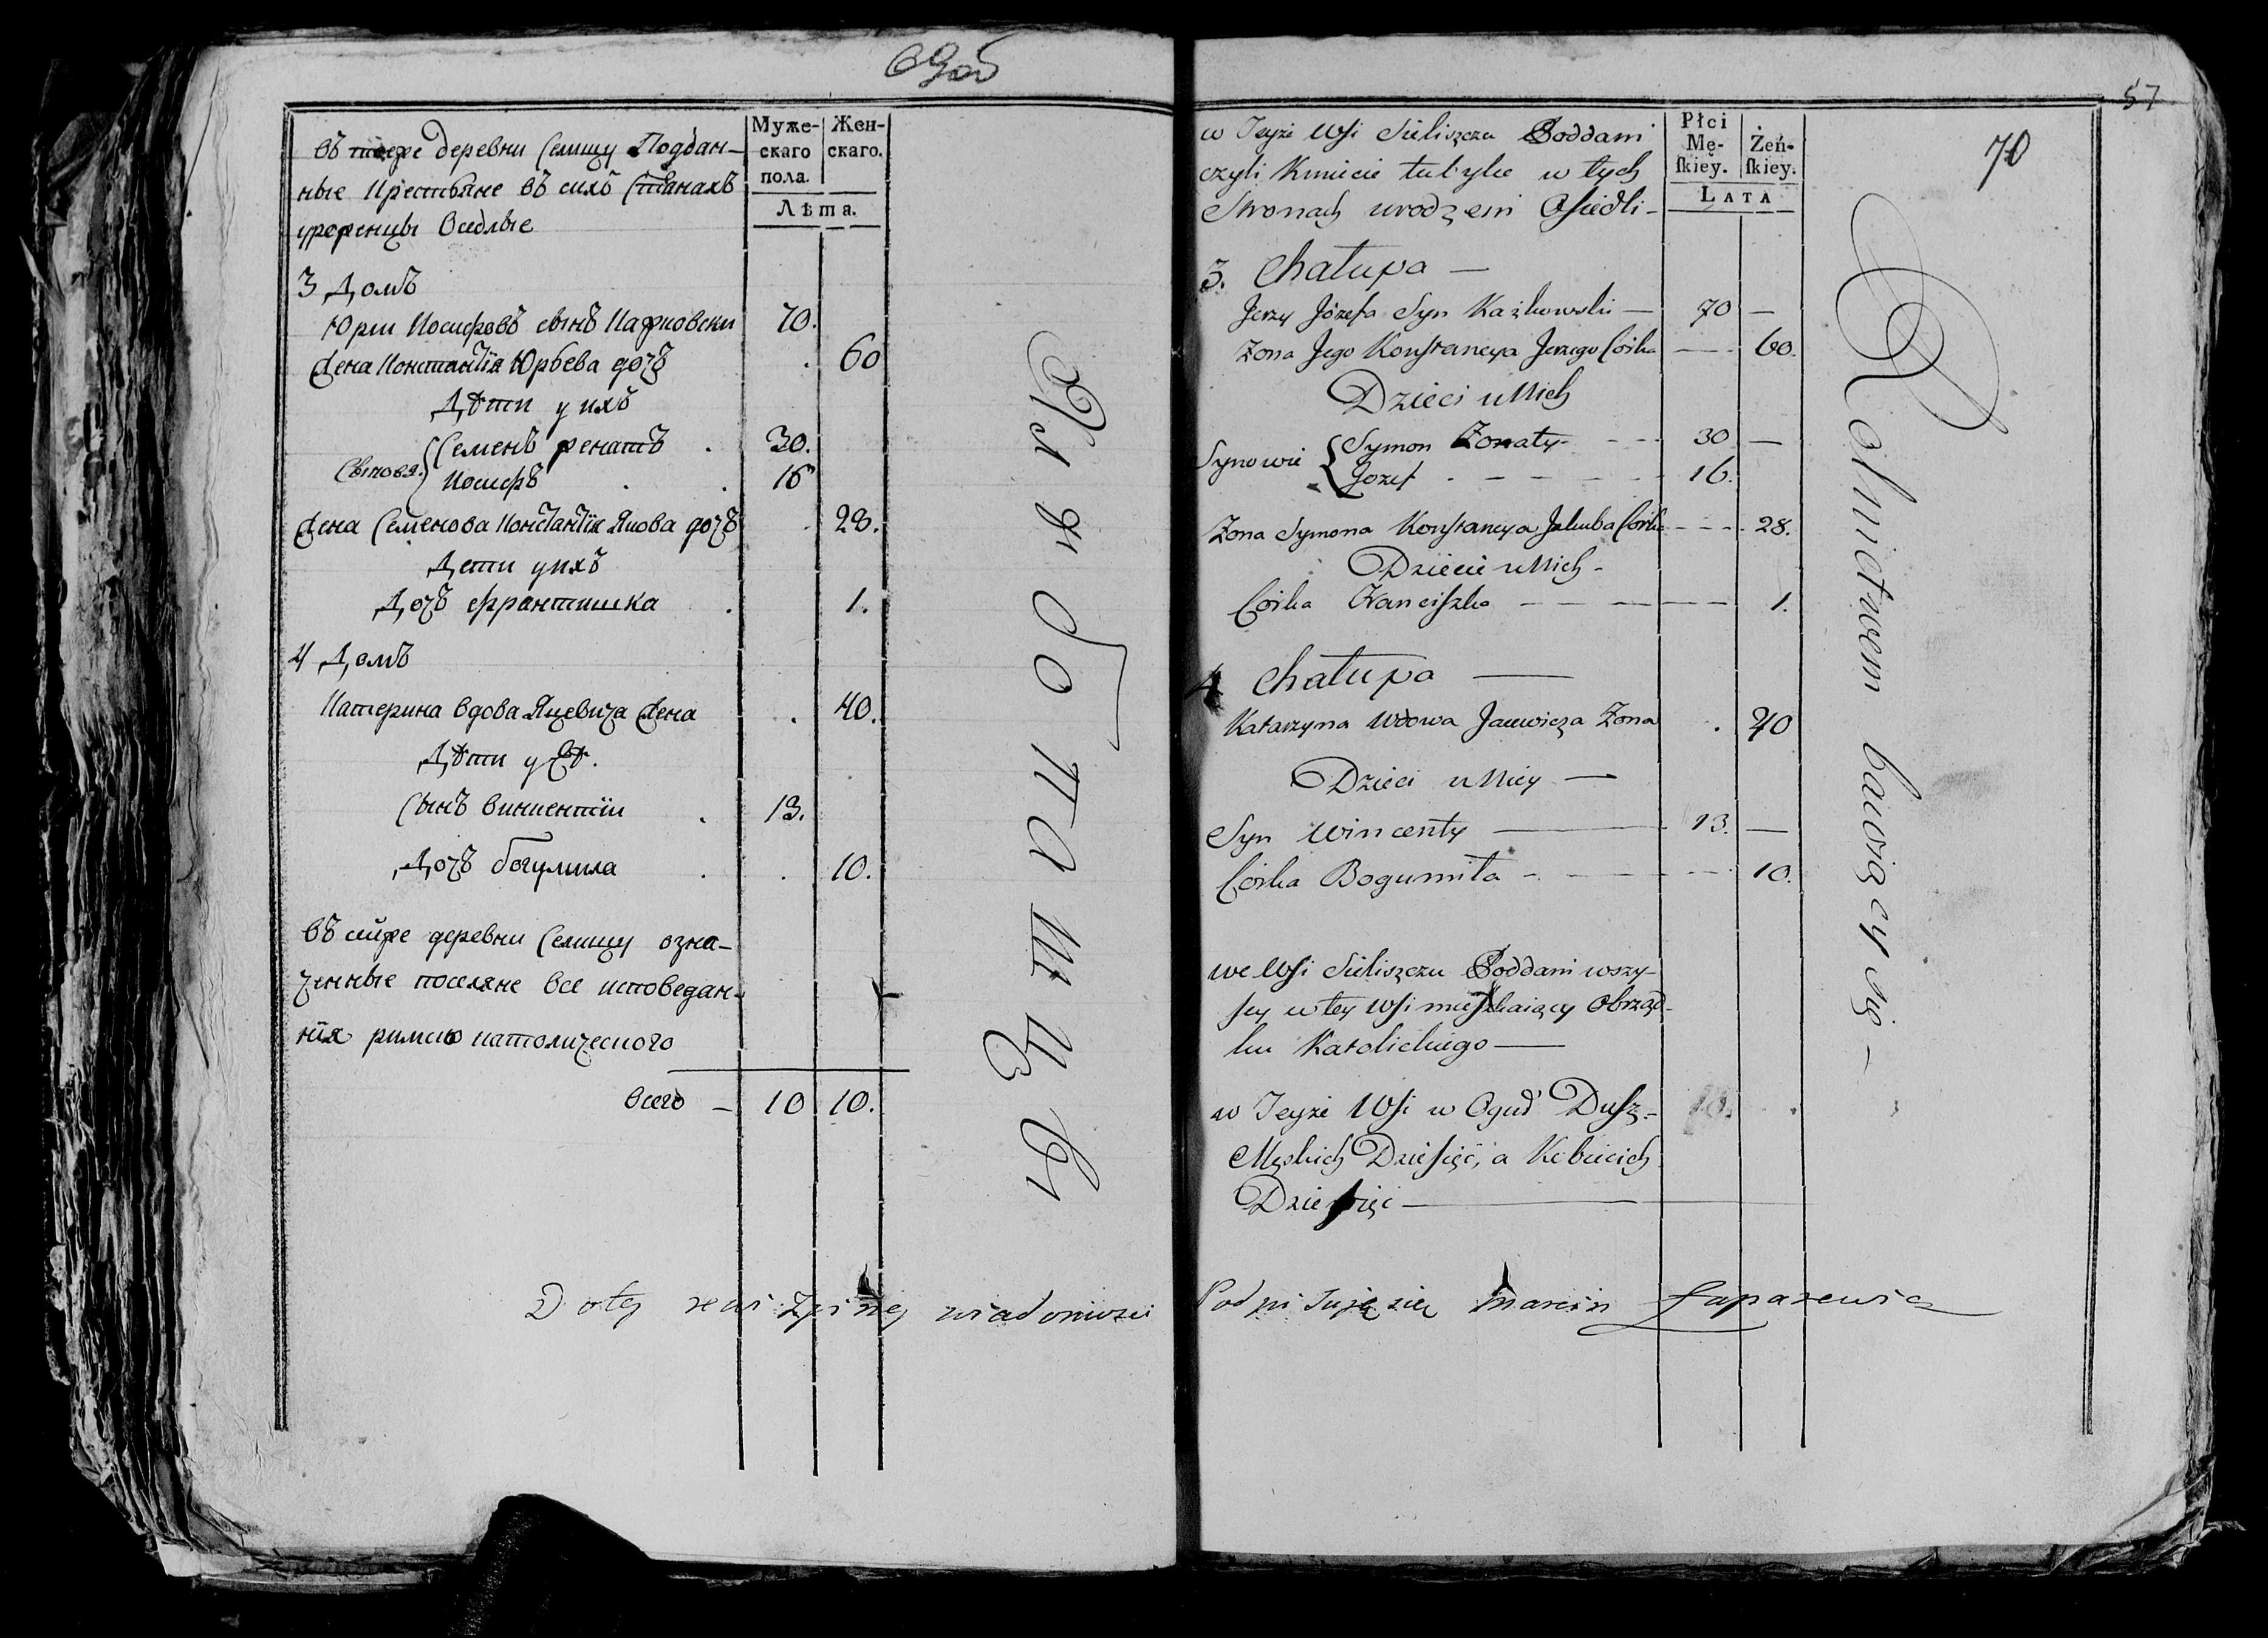 69об
въ тойже деревни Селищу Поддан-
ные Крестьяне въ сихъ странахъ
урожденцы Оседлые
Муже-
скаго
пола.
Жен-
скаго.
Лѣта.
3 Домъ
Юрии Иосифовъ сынъ Кажковски 70.
Жена Констанция Юрьева дочь 60
Дѣти у ихъ
Сыновя. { Семенъ женатъ 30.
Иосифъ 16
Жена Семенова Констанция Якова дочь 28.
Дети у ихъ
Дочь Франтишка 1.
4 Домъ
Катерина вдова Яцевича Жена 40.
Дѣти у Ее.
Сынъ Винцентии 13.
Дочь Богумила 10.
въ сиqже деревни Селищу озна-
ченные поселяне все исповедан-
ния римско католического
Всего — 10 10.
Хлѣбопашцы
Do tey rewizyiney wiadomosci
57
70
w Teyże Wsi Sieliszczu Poddani
czyli Kmiecie tubylce w tych
Stronach urodzeni Osiedli-
Płci
Mę-
skiey.
Żeń-
skiey.
LATA
3. Chałupa —
Jerzy Józefa Syn Każkowski — 70 —
Żona Jego Konstancya Jerzego Córka — 60.
Dzieci u Nich
Synowie { Symon Żonaty - - - 30 —
Jozef - - - - - 16.
Żona Symona Konstancya Jakuba Córka - - - 28.
Dziecie u Nich -
Córka Franciszka — — — — 1.
4 Chałupa —
Katarzyna Wdowa Jacewicza Żona . 40
Dzieci u Niey —
Syn Wincenty — 13. —
Córka Bogumiła - - - - 10.
we Wsi Sieliszczu Poddani wszy-
scy w tey Wsi mieszkaiący Obrząd-
ku Katolickiego —
w Teyże Wsi w Oguł Dusz - 10.
Męskich Dziesięć, a Kobiecich
Dziesięć —
Rolnictwem bawiący się —
Podpisuję się Marcin Łaparewicz